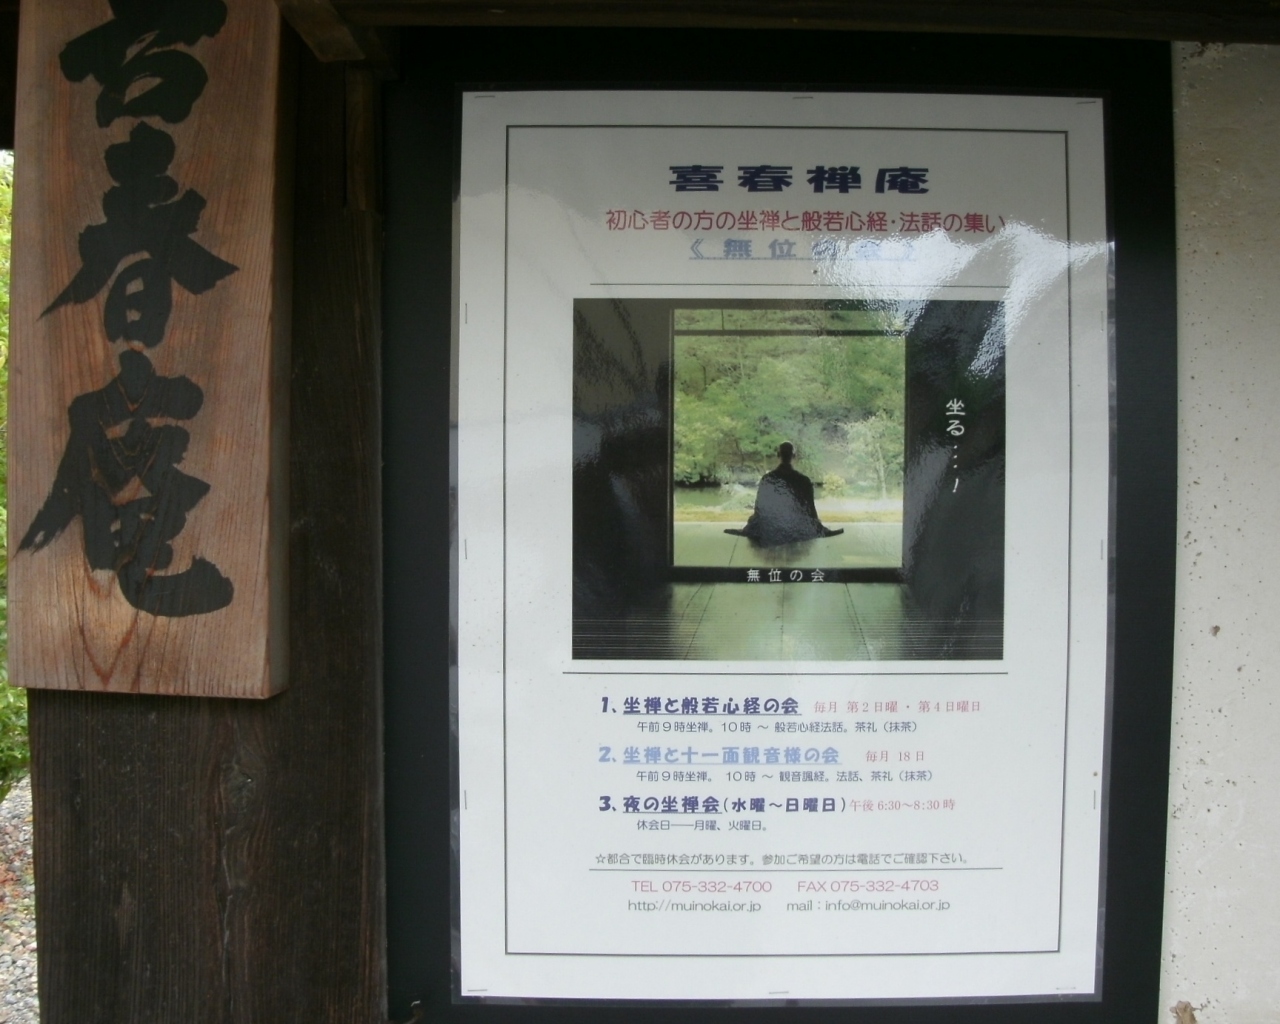 春庵
喜春禅庵
初心者の方の坐禅と般若心経・法話の集い
《無位の会》
坐る・・・・!
無位の会
1、坐禅と般若心経の会 毎月 第2日曜・第4日曜日
午前9時坐禅。10時 ～ 般若心経法話。茶礼（抹茶）
2、坐禅と十一面観音様の会 毎月 18日
午前9時坐禅。 10時 ～ 観音諷経。法話、茶礼（抹茶）
3、夜の坐禅会(水曜～日曜日)午後6:30～8:30時
休会日――月曜、火曜日。
☆都合で臨時休会があります。参加ご希望の方は電話でご確認下さい。
TEL 075-332-4700 FAX 075-332-4703
http://muinokai.or.jp mail：info@muinokai.or.jp